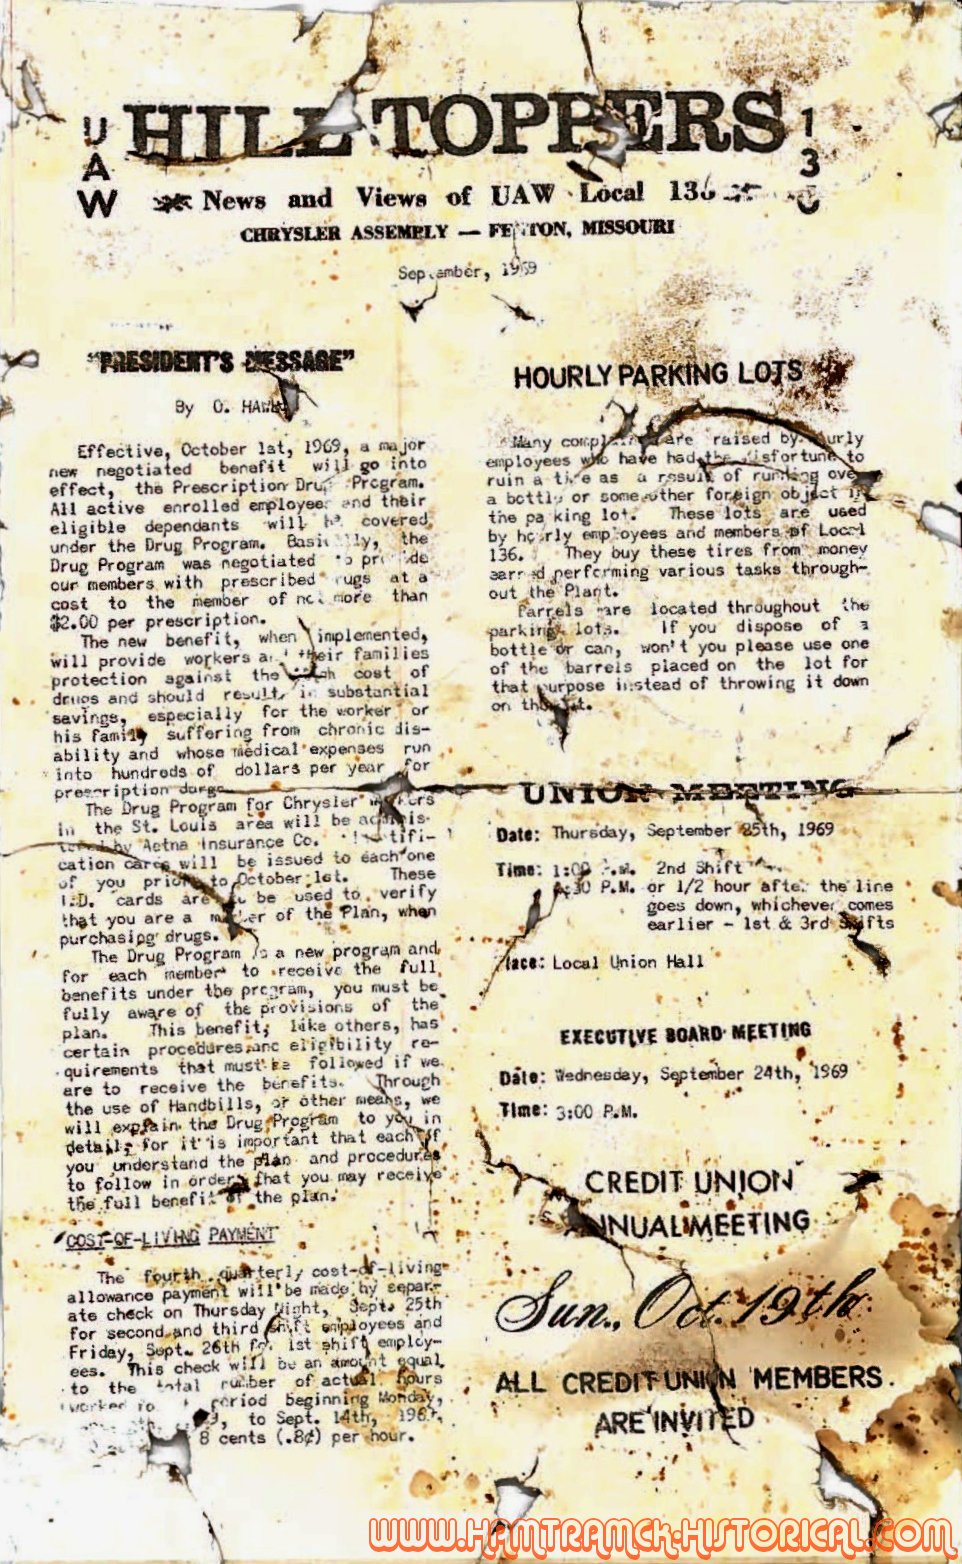 UAW
HILL TOPPERS
136
News and Views of UAW Local 136
CHRYSLER ASSEMBLY — FENTON, MISSOURI
September, 1969
"PRESIDENT'S MESSAGE"
By O. HAWK
Effective, October 1st, 1969, a major
new negotiated benefit will go into
effect, the Prescription Drug Program.
All active enrolled employees and their
eligible dependants will be covered
under the Drug Program. Basically, the
Drug Program was negotiated to provide
our members with prescribed drugs at a
cost to the member of not more than
$2.00 per prescription.
The new benefit, when implemented,
will provide workers and their families
protection against the high cost of
drugs and should result in substantial
savings, especially for the worker or
his family suffering from chronic dis-
ability and whose medical expenses run
into hundreds of dollars per year for
prescription
The Drug Program for Chrysler workers
in the St. Louis area will be adminis-
tered by Aetna Insurance Co. Identifi-
cation cards will be issued to each one
of you prior to October 1st. These
I.D. cards are to be used to verify
that you are a member of the Plan, when
purchasing drugs.
The Drug Program is a new program and
for each member to receive the full
benefits under the program, you must be
fully aware of the provisions of the
plan. This benefit, like others, has
certain procedures and eligibility re-
quirements that must be followed if we
are to receive the benefits. Through
the use of Handbills, or other means, we
will explain the Drug Program to you in
detail, for it is important that each of
you understand the plan and procedures
to follow in order that you may receive
the full benefit of the plan.
COST-OF-LIVING PAYMENT
The fourth quarterly cost-of-living
allowance payment will be made by separ-
ate check on Thursday Night, Sept. 25th
for second and third shift employees and
Friday, Sept. 26th for 1st shift employ-
ees. This check will be an amount equal
to the total number of actual hours
worked period beginning Monday,
to Sept. 14th, 1969,
8 cents (.8¢) per hour.
HOURLY PARKING LOTS
Many complaints are raised by hourly
employees who have had the misfortune to
ruin a tire as a result of running over
a bottle or some other foreign object in
the parking lot. These lots are used
by hourly employees and members of Local
136. They buy these tires from money
earned performing various tasks through-
out the Plant.
Barrels are located throughout the
parking lots. If you dispose of a
bottle or can, won't you please use one
of the barrels placed on the lot for
that purpose instead of throwing it down
on the lot.
UNION MEETING
Date: Thursday, September 25th, 1969
Time: 1:00 P.M. 2nd Shift
4:30 P.M. or 1/2 hour after the line
goes down, whichever comes
earlier - 1st & 3rd Shifts
Place: Local Union Hall
EXECUTIVE BOARD MEETING
Date: Wednesday, September 24th, 1969
Time: 3:00 P.M.
CREDIT UNION
ANNUAL MEETING
Sun., Oct. 19th
ALL CREDIT UNION MEMBERS
ARE INVITED
WWW.HAMTRAMCK-HISTORICAL.COM